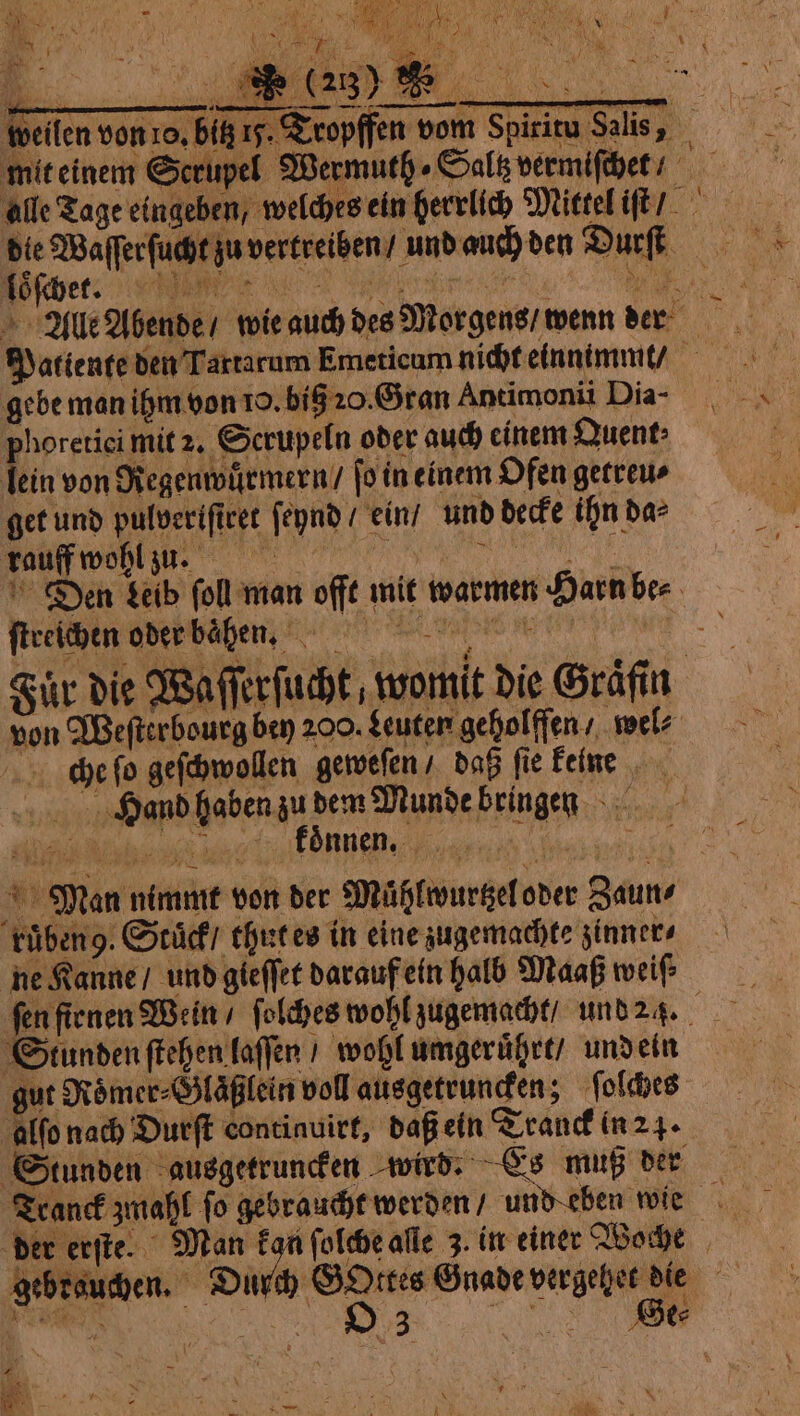 (213)
weilen von 10. bitz 15. Tropffen vom Spiritu Salis,
mit einem Scrupel Wermuth-Saltz vermiſchet /
alle Tage eingeben, welches ein herrlich Mittel iſt /
die Waſſerſucht zu vertreiben / und auch den Durſt
loͤſchet.
Alle Abende / wie auch des Morgens / wenn der
Patiente den Tartarum Emeticum nicht einnimmt /
gebe man ihm von 10. biß 20. Gran Antimonii Dia-
phoretici mit 2. Scrupeln oder auch einem Quent-
lein von Regenwuͤrmern / ſo in einem Ofen getreu-
get und pulveriſiret ſeynd / ein / und decke ihn da-
rauff wohl zu.
Den Leib ſoll man offt mit warmen Harn be-
ſtreichen oder baͤhen.
Fuͤr die Waſſerſucht, womit die Graͤfin
von Weſterbourg bey 200. Leuten geholffen / wel-
che ſo geſchwollen geweſen / daß ſie keine
Hand haben zu dem Munde bringen
koͤnnen.
Man nimmt von der Muͤhlwurtzel oder Zaun-
ruͤben 9. Stuͤck / thut es in eine zugemachte zinner-
ne Kanne / und gieſſet darauf ein halb Maaß weiſ-
ſen firnen Wein / ſolches wohl zugemacht / und 24.
Stunden ſtehen laſſen / wohl umgeruͤhrt / und ein
gut Roͤmer-Glaͤßlein voll ausgetruncken; ſolches
alſo nach Durſt continuirt, daß ein Tranck in 24.
Stunden ausgetruncken wird. Es muß der
Tranck 3mahl ſo gebraucht werden / und eben wie
der erſte. Man kan ſolche alle 3. in einer Woche
gebrauchen. Durch GOttes Gnade vergehet die
O 3 Ge-